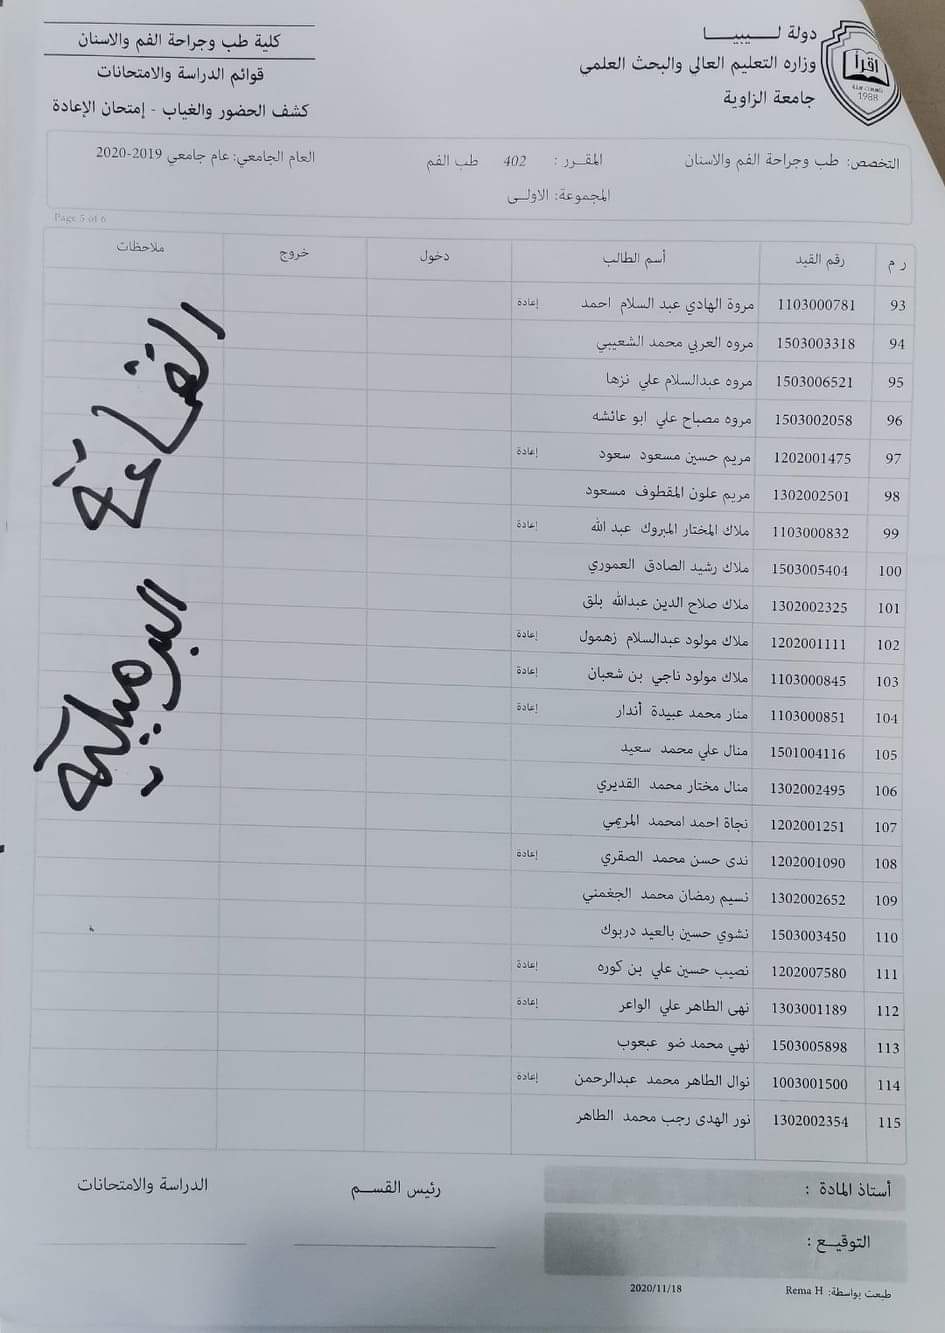 دولة لـــيبيـــا
وزاره التعليم العالي والبحث العلمي
جامعة الزاوية
اقرأ
1988
كلية طب وجراحة الفم والاسنان
قوائم الدراسة والامتحانات
كشف الحضور والغياب - إمتحان الإعادة
التخصص: طب وجراحة الفم والاسنان المقـــرر : 402 طب الفم العام الجامعي: عام جامعي 2019-2020
المجموعة: الاولـــى
Page 5 of 6
ر م رقم القيد أسم الطالب دخول خروج ملاحظات
93 1103000781 مروة الهادي عبد السلام احمد إعادة
94 1503003318 مروه العربي محمد الشعيبي
95 1503006521 مروه عبدالسلام علي نزها
96 1503002058 مروه مصباح علي ابو عائشه
97 1202001475 مريم حسين مسعود سعود إعادة
98 1302002501 مريم علون المقطوف مسعود
99 1103000832 ملاك المختار المبروك عبد الله إعادة
100 1503005404 ملاك رشيد الصادق العموري
101 1302002325 ملاك صلاح الدين عبدالله بلق
102 1202001111 ملاك مولود عبدالسلام زهمول إعادة
103 1103000845 ملاك مولود ناجي بن شعبان إعادة
104 1103000851 منار محمد عبيدة أندار إعادة
105 1501004116 منال علي محمد سعيد
106 1302002495 منال مختار محمد القديري
107 1202001251 نجاة احمد امحمد المريمي
108 1202001090 ندى حسن محمد الصقري إعادة
109 1302002652 نسيم رمضان محمد الجغمني
110 1503003450 نشوي حسين بالعيد دربوك
111 1202007580 نصيب حسين علي بن كوره إعادة
112 1303001189 نهى الطاهر علي الواعر إعادة
113 1503005898 نهي محمد ضو عبعوب
114 1003001500 نوال الطاهر محمد عبدالرحمن إعادة
115 1302002354 نور الهدى رجب محمد الطاهر
القاعة
أستاذ المادة : رئيس القســـم الدراسة والامتحانات
التوقيـــع :
طبعت بواسطة: Rema H 2020/11/18